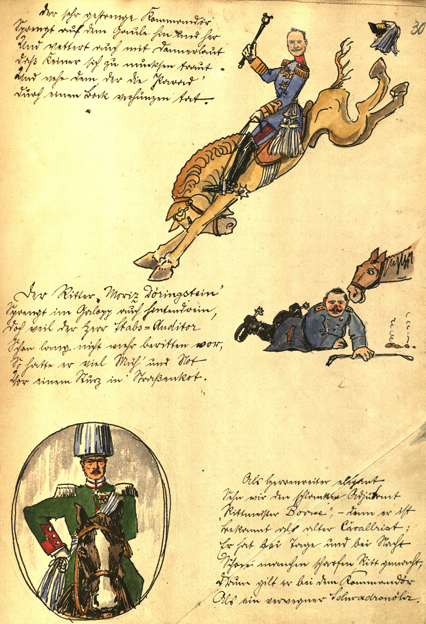 Der sehr gestrenge Kommandör
Sprengt auf dem Gaule hin und her
Und wettert auch mit Donnerlaut
Daß keiner sich zu mucksen traut
Und wehe dem der die Parad'
Durch einen Bock verhunzen tat.
30
Der Ritter „Moriz Döringstein"
Sprengt im Galopp auch hintendrein,
Doch weil der Herr Stabs-Auditor
Schon lang nicht mehr beritten vor,
So hatte er viel Müh' und Not
Vor einem Sturz in Straßenkot.
Als Herrenreiter elegant
Seh'n wir den schlanken Adjutant
Rittmeister „Borne", – denn er ist
Bekannt als alter Cavallerist;
Er hat bei Tage und bei Nacht
Schon manchen scharfen Ritt gemacht,
Drum gilt er bei dem Kommandör
Als ein verwegner